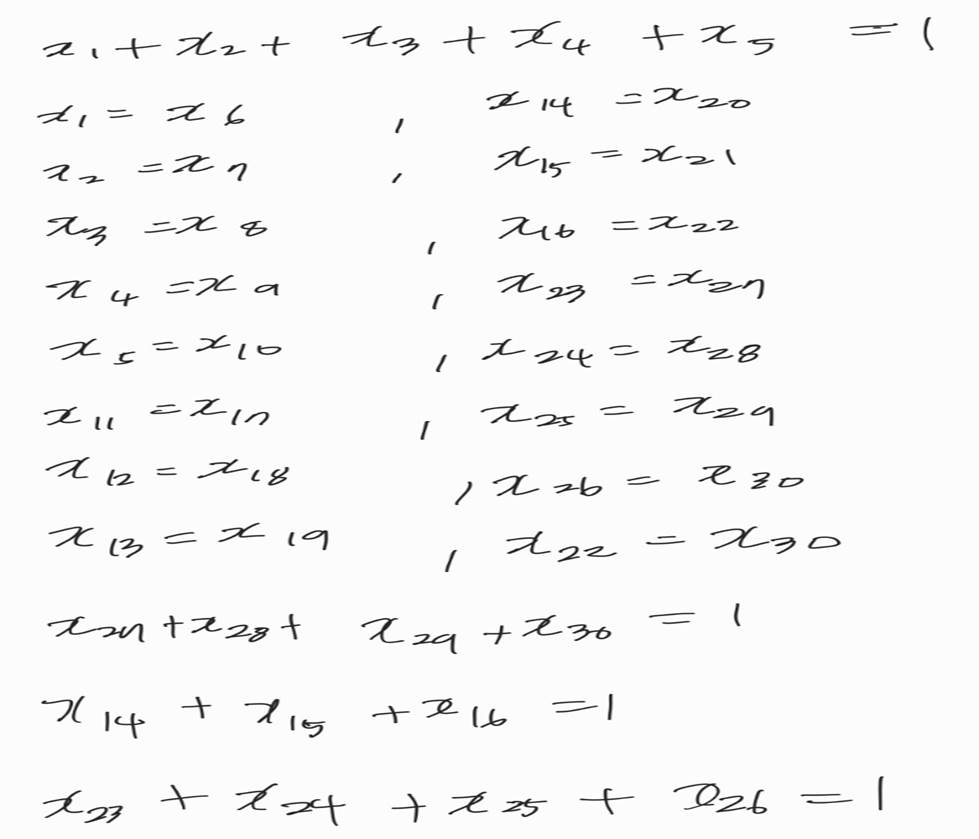 x₁ + x₂ + x₃ + x₄ + x₅ = 1
x₁ = x₆ , x₁₄ = x₂₀
x₂ = x₇ , x₁₅ = x₂₁
x₃ = x₈ , x₁₆ = x₂₂
x₄ = x₉ , x₂₃ = x₂₇
x₅ = x₁₀ , x₂₄ = x₂₈
x₁₁ = x₁₇ , x₂₅ = x₂₉
x₁₂ = x₁₈ , x₂₆ = x₃₀
x₁₃ = x₁₉ , x₂₂ = x₃₀
x₂₇ + x₂₈ + x₂₉ + x₃₀ = 1
x₁₄ + x₁₅ + x₁₆ = 1
x₂₃ + x₂₄ + x₂₅ + x₂₆ = 1